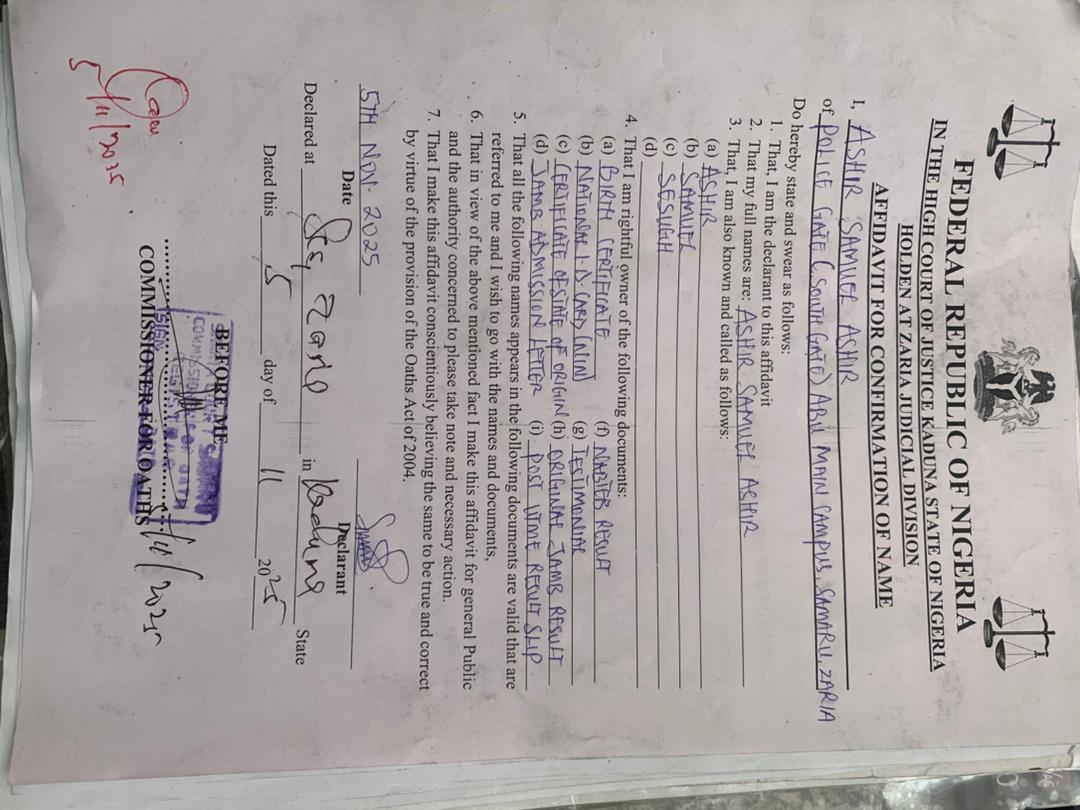 FEDERAL REPUBLIC OF NIGERIA
IN THE HIGH COURT OF JUSTICE KADUNA STATE OF NIGERIA
HOLDEN AT ZARIA JUDICIAL DIVISION
AFFIDAVIT FOR CONFIRMATION OF NAME
I, ASHIR SAMUEL ASHIR
of POLICE GATE (SOUTH GATE) ABU MAIN CAMPUS, SAMARU, ZARIA
Do hereby state and swear as follows:
1. That, I am the declarant to this affidavit
2. That my full names are: ASHIR SAMUEL ASHIR
3. That, I am also known and called as follows:
(a) ASHIR
(b) SAMUEL
(c) SESUGH
(d)
4. That I am rightful owner of the following documents:
(a) BIRTH CERTIFICATE (f) NABTEB RESULT
(b) NATIONAL I.D. CARD (NIN) (g) TESTIMONIAL
(c) CERTIFICATE OF STATE OF ORIGIN (h) ORIGINAL JAMB RESULT
(d) JAMB ADMISSION LETTER (i) POST UTME RESULT SLIP
5. That all the following names appears in the following documents are valid that are
referred to me and I wish to go with the names and documents,
6. That in view of the above mentioned fact I make this affidavit for general Public
and the authority concerned to please take note and necessary action.
7. That I make this affidavit conscientiously believing the same to be true and correct
by virtue of the provision of the Oaths Act of 2004.
5TH NOV. 2025
Date Declarant
Declared at in Kaduna State
Dated this 5 day of 11 2025
BEFORE ME
COMMISSIONER FOR OATHS
5/11/2025